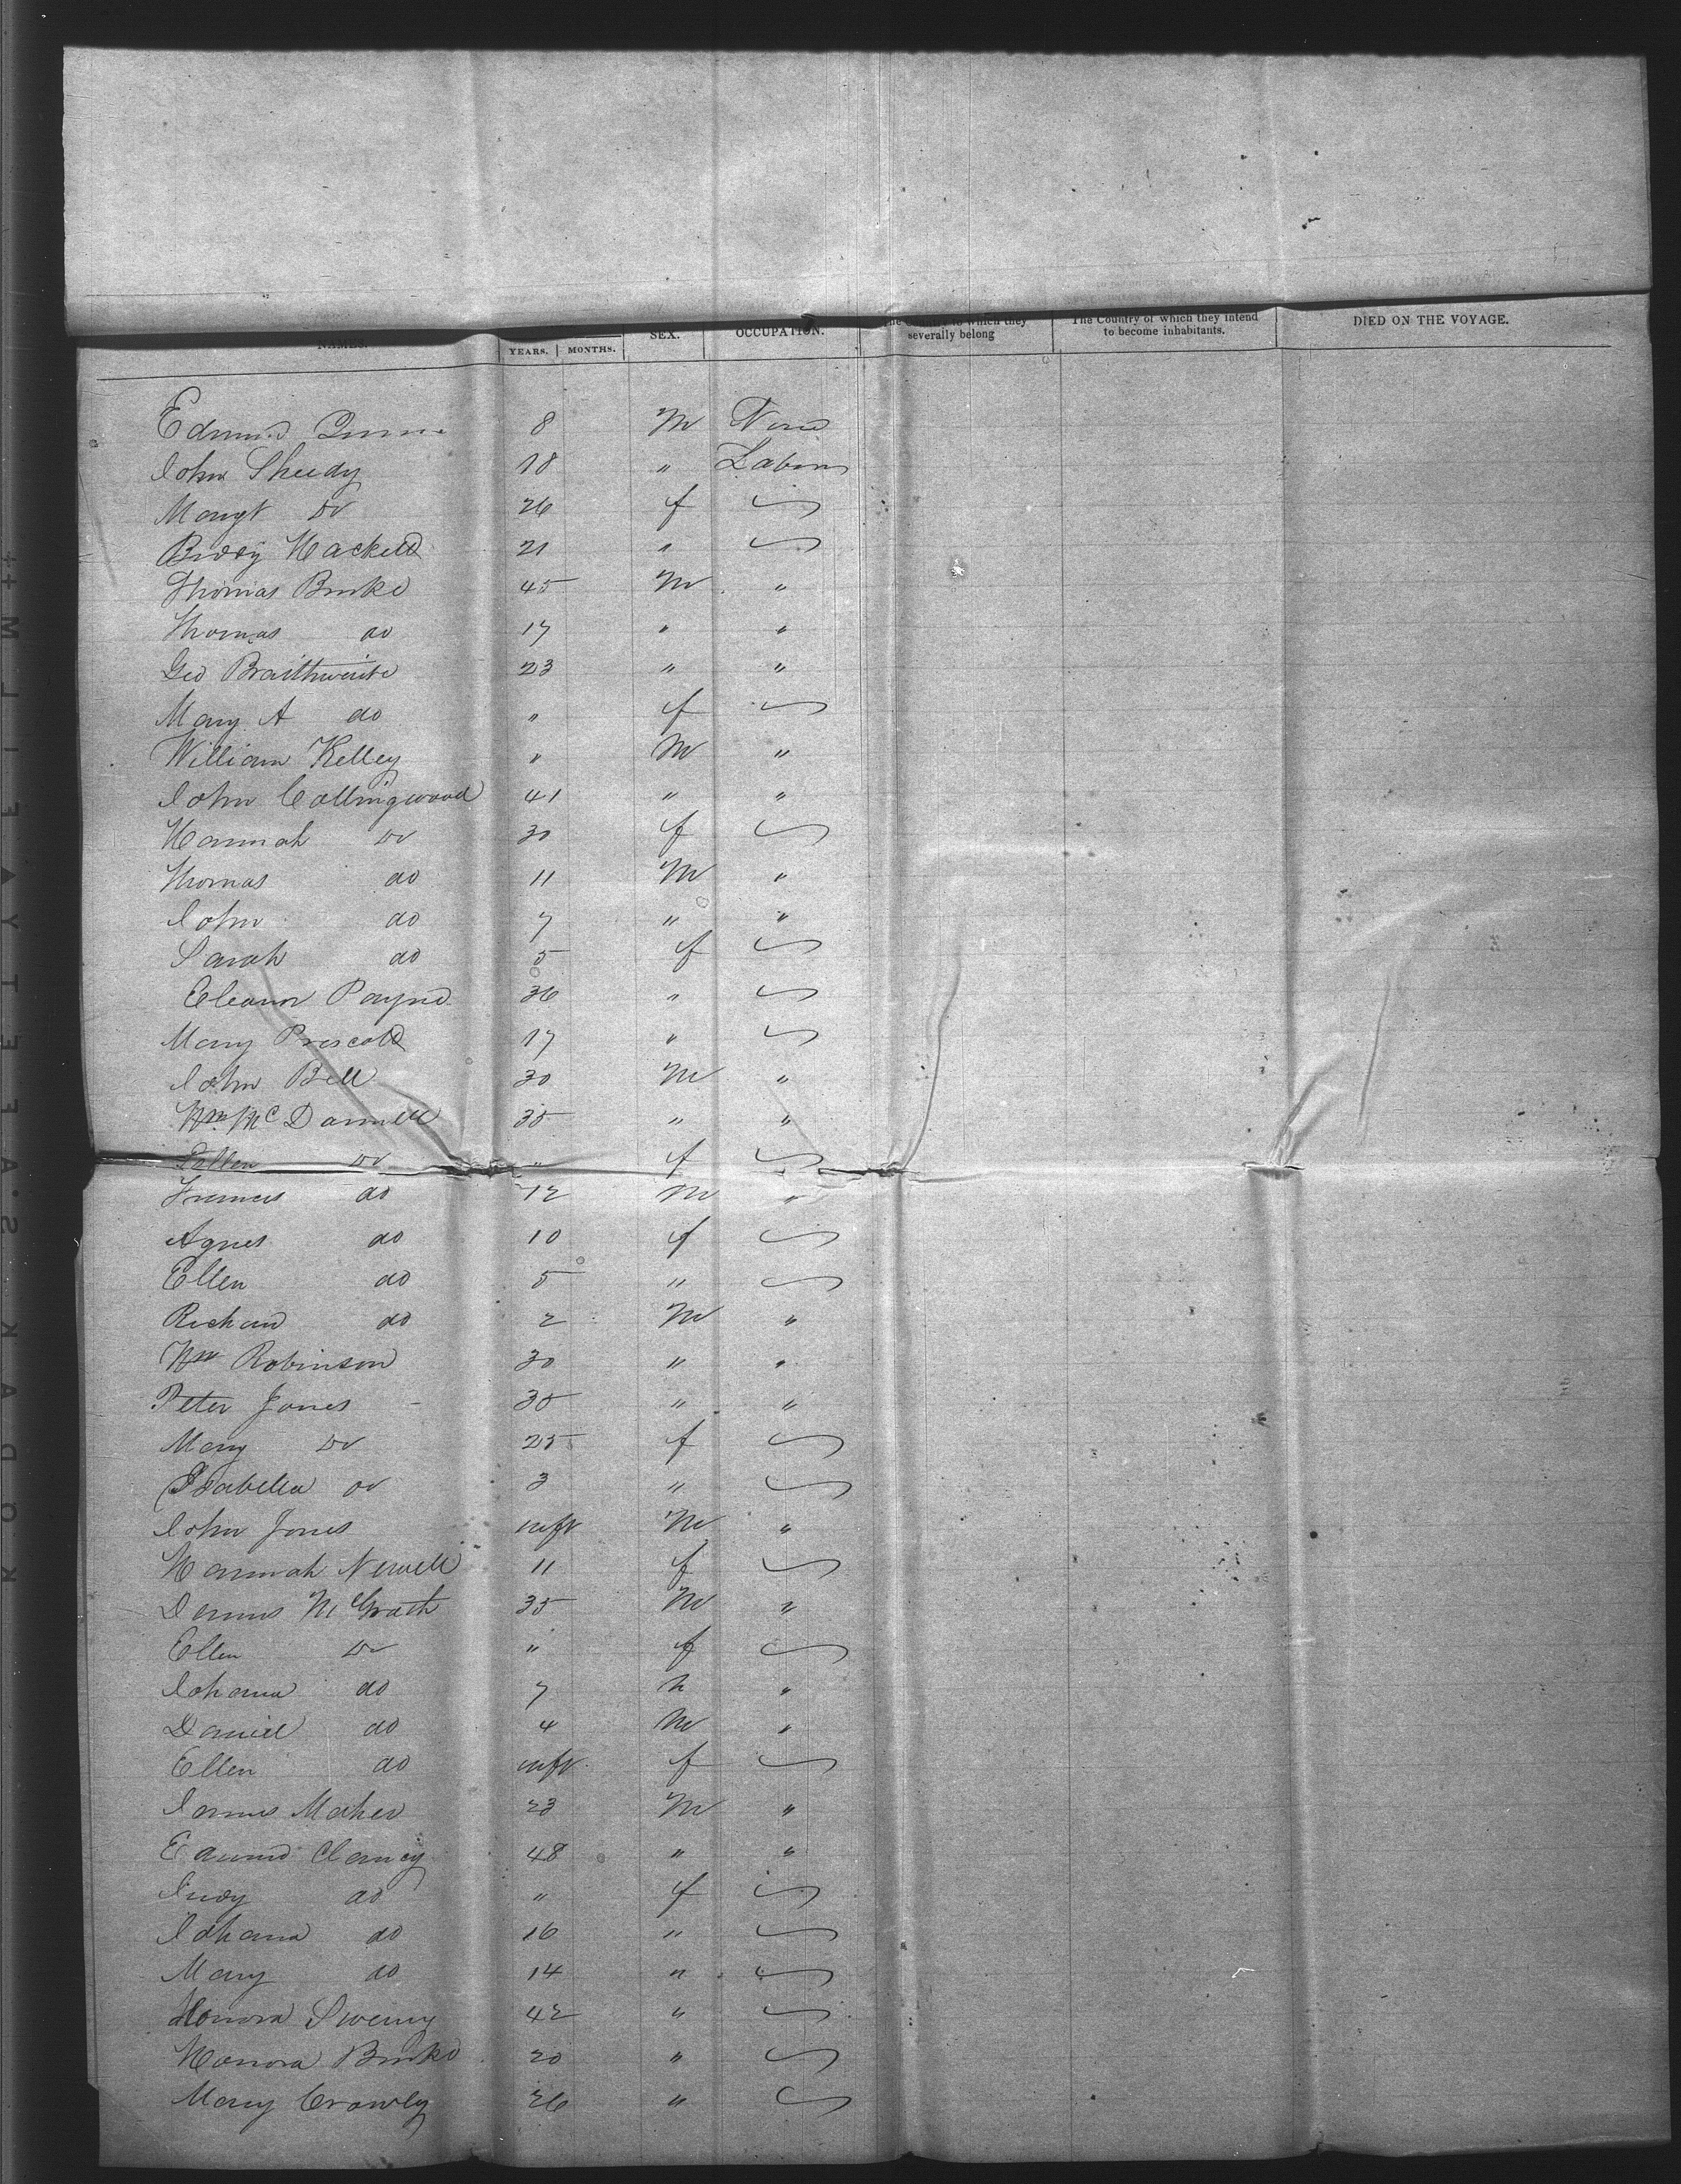 NAMES. YEARS. MONTHS. SEX. OCCUPATION. to which they severally belong The Country of which they intend to become inhabitants. DIED ON THE VOYAGE.
Edmund Quinn 8 M None
John Sheedy 18 " Labour
Margt Do 26 f
Biddy Hackett 21 "
Thomas Burke 45 M "
Thomas do 17 " "
Geo Braithwaite 23 " "
Mary A do " f
William Kelley " M "
John Collingwood 41 " "
Hannah Do 30 f
Thomas do 11 M "
John do 7 " "
Sarah do 5 f
Eleanor Payne 36 "
Mary Prescott 17 "
John Bell 30 M "
Wm McDannell 35 " "
Ellen Do " f
Frances do 12 M "
Agnes do 10 f
Ellen do 5 "
Richard do 2 M "
Wm Robinson 30 " "
Peter Jones 35 " "
Mary Do 25 f
Isabella do 3 "
John Jones inft M "
Hannah Newell 11 f
Dennis McGrath 35 M "
Ellen Do " f
Johana do 7 "
Daniel do 4 M "
Ellen do inft f
James Maher 23 M "
Edmund Clancy 48 " "
Judy do " f
Johana do 16 "
Mary do 14 "
Honora Sweeny 42 "
Honora Burke 20 "
Mary Crowley 26 "